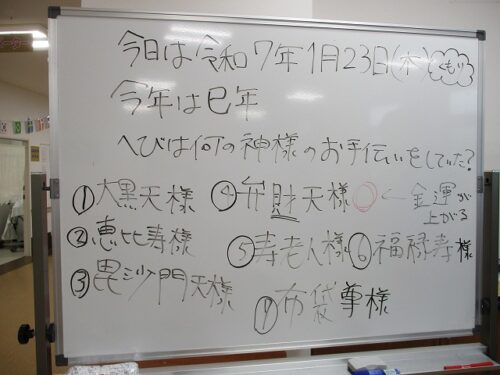 今日は令和7年1月23日(木) くもり
今年は巳年
へびは何の神様のお手伝いをしていた?
①大黒天様
②恵比寿様
③毘沙門天様
④弁財天様 ○ ← 金運が上がる
⑤寿老人様
⑥福禄寿様
⑦布袋尊様